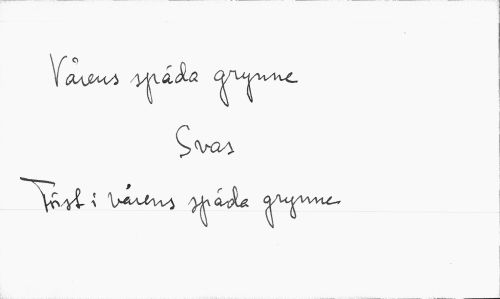 Vårens späda grynne
Svas
Först i vårens späda grynne